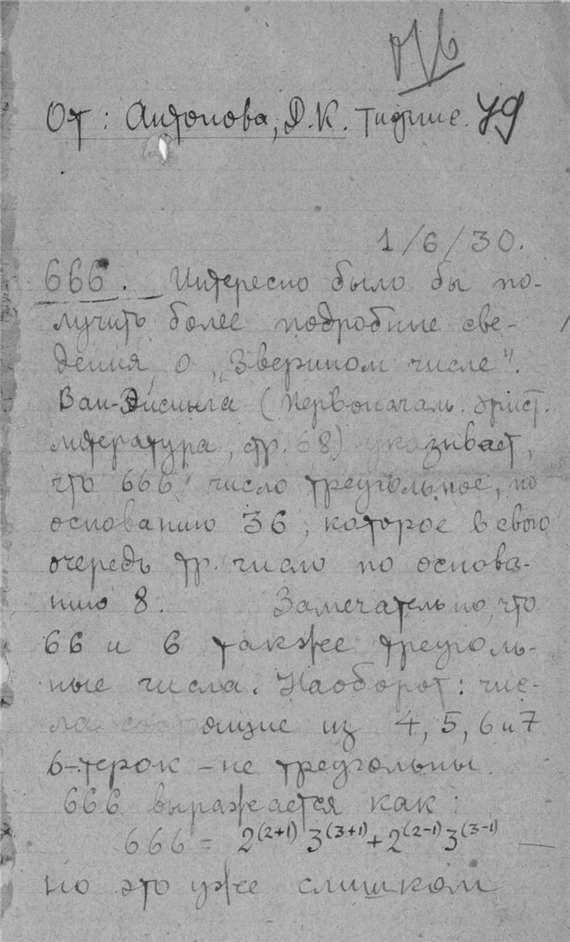 От: Антонова, Д.К. Тифлис. 79
1/6/30.
666. Интересно было бы по-
лучить более подробные све-
дения о „Зверином числе".
Ван- (Первоначаль. христ.
литература, стр. 68) указывает,
что 666 число треугольное, по
основанию 36, которое в свою
очередь тр. число по основа-
нию 8. Замечательно, что
66 и 6 также треуголь-
ные числа. Наоборот: чис-
ла состоящие из 4, 5, 6 и 7
6-терок - не треугольны.
666 выражается как:
666 = 2^(2+1) 3^(3+1) + 2^(2-1) 3^(3-1)
но это уже слишком